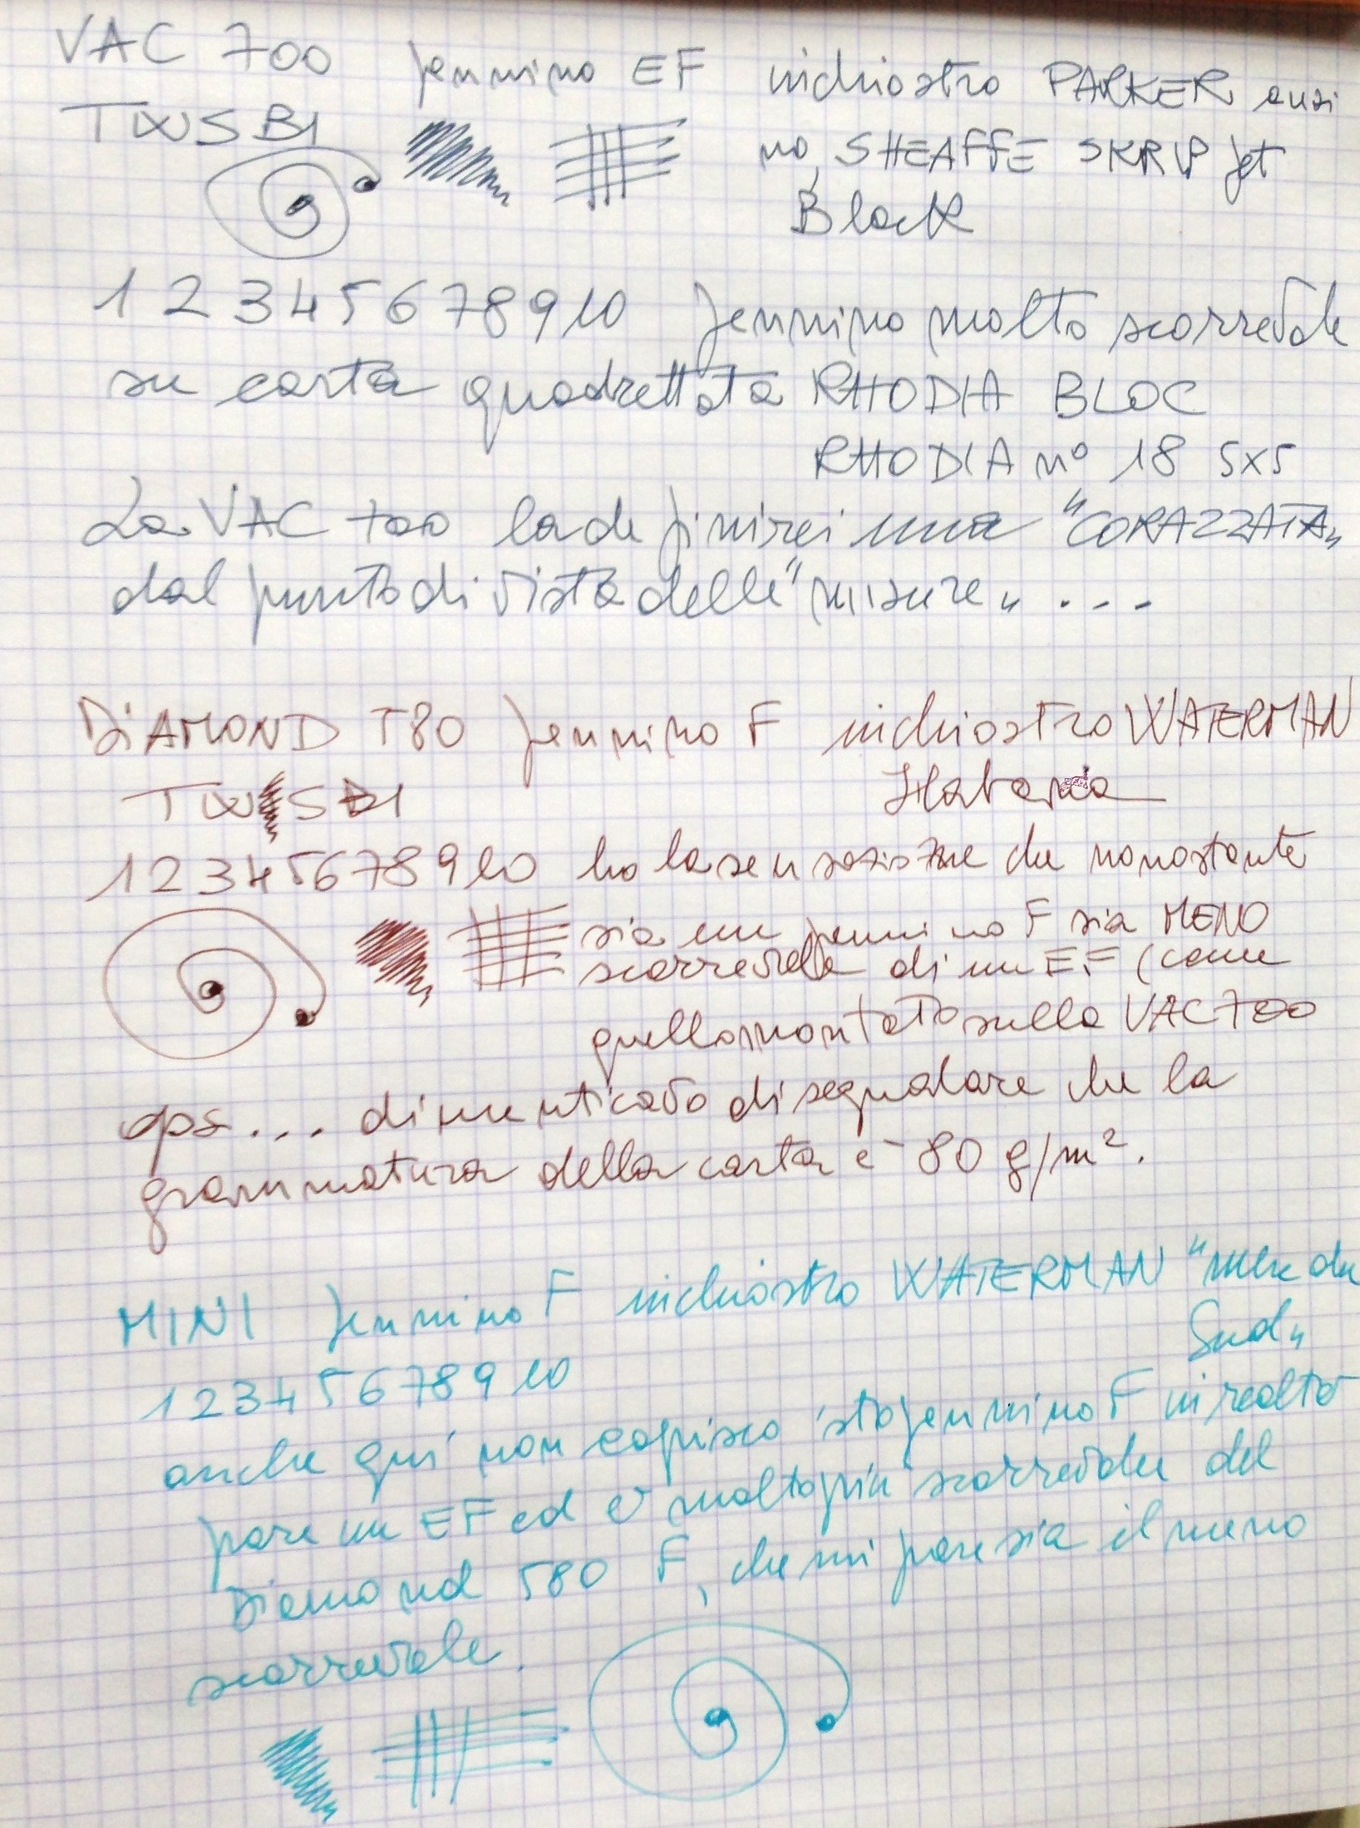 VAC 700 pennino EF inchiostro PARKER anzi
TWSBI no, SHEAFFE SKRIP jet
Black
1 2 3 4 5 6 7 8 9 10 pennino molto scorrevole
su carta quadrettata RHODIA BLOC
RHODIA n° 18 5x5
La VAC 700 la definirei una "CORAZZATA"
dal punto di vista delle "misure" ...
DiAMOND T80 pennino F inchiostro WATERMAN
TWSBI Habana
1 2 3 4 5 6 7 8 9 10 ho la sensazione che nonostante
sia un pennino F sia MENO
scorrevole di un EF (come
quello montato sulla VAC 700
ops... dimenticavo di segnalare che la
grammatura della carta è 80 g/m².
MINI pennino F inchiostro WATERMAN "mer du
Sud"
1 2 3 4 5 6 7 8 9 10
anche qui non capisco 'sto pennino F in realtà
pare un EF ed è molto più scorrevole del
Diamond 580 F, che mi pare sia il meno
scorrevole.